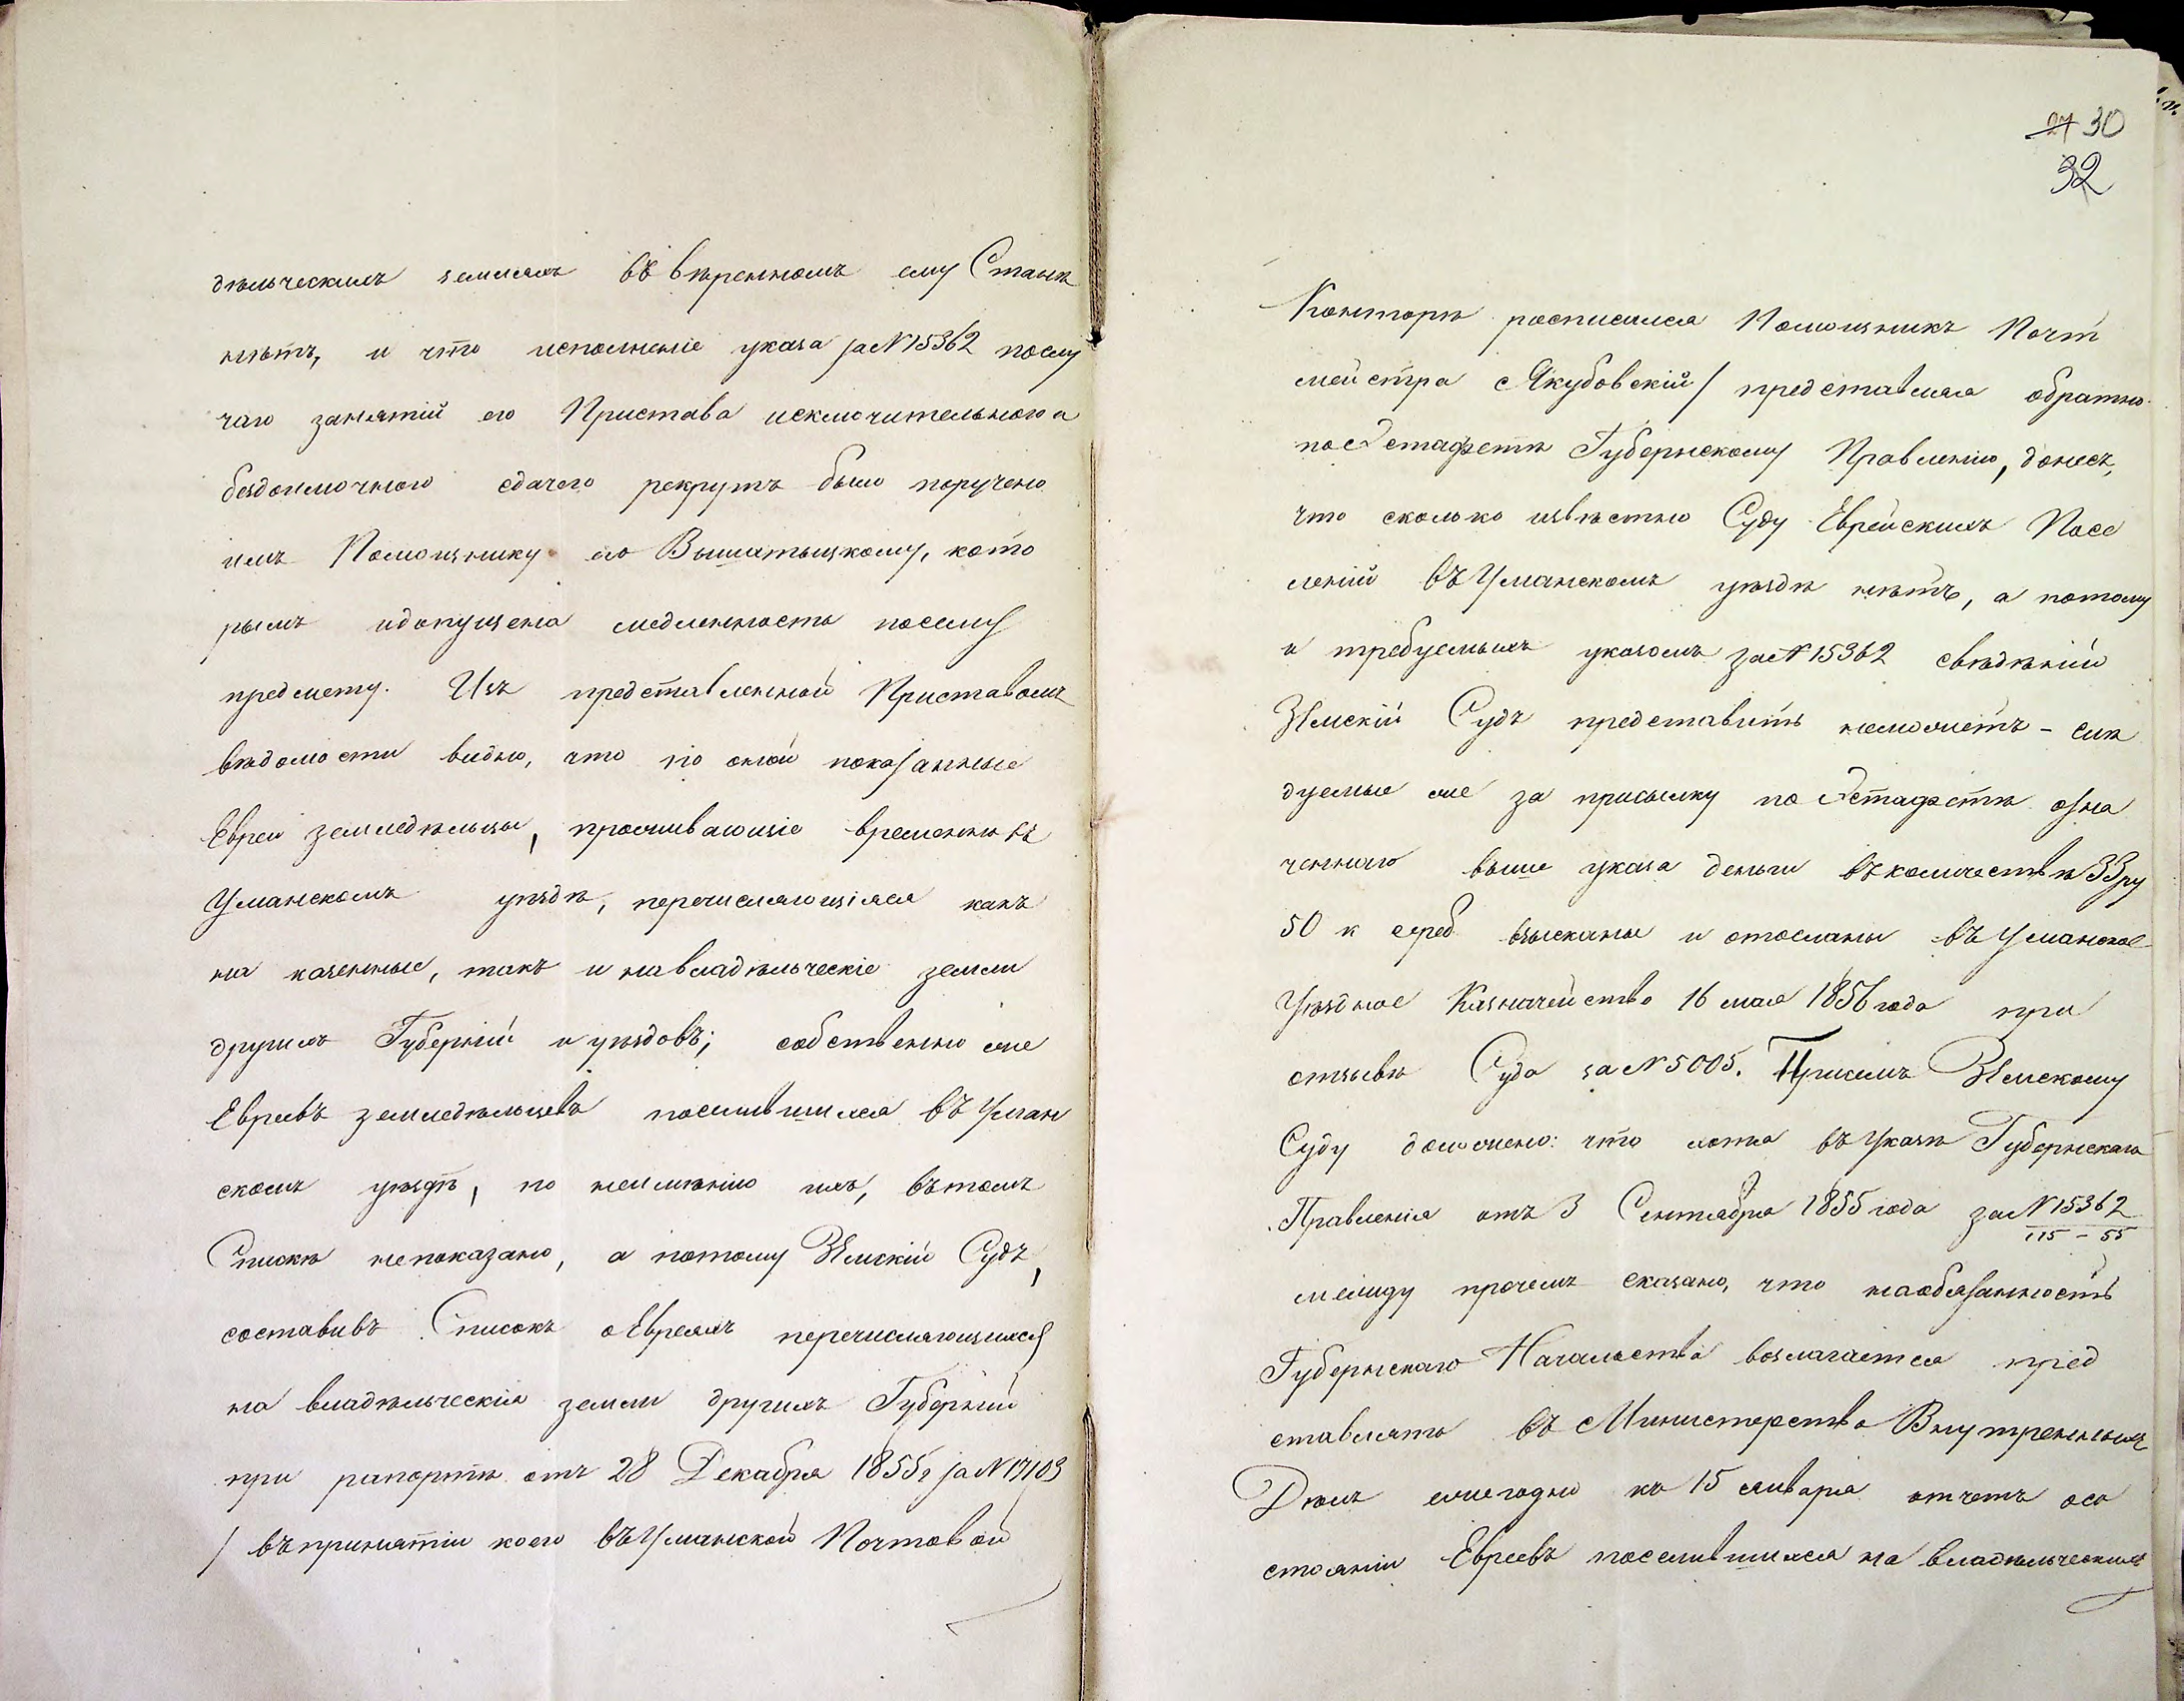 дѣльческихъ земляхъ въ ввѣренномъ ему Станѣ
нѣтъ, и что исполненіе указа за № 15362 по слу
чаю занятій его Пристава исключительного а
бездоимочного сдачею рекрутъ было поручено
имъ Помощнику его Вышатыцкому, кото
рымъ и допущена медленность посему
предмету. Изъ представленной Приставомъ
вѣдомости видно, что по оной показанные
Евреи земледѣльцы, проживающіе временно въ
Уманскомъ уѣздѣ, перечисляющіяся какъ
на казенные, такъ и на владѣльческіе земли
другихъ Губерній и уѣздовъ; собственно же
Евреевъ земледѣльцевъ поселившихся въ Уман
скомъ уѣздѣ, по неимѣнію ихъ, въ томъ
Спискѣ не показано, а потому Земскій Судъ,
составивъ Списокъ о Евреяхъ перечисляющихся
на владѣльческія земли другихъ Губерній
при рапортѣ отъ 28 Декабря 1855 г за № 17103
/ въ принятіи коего въ Уманской Почтовой
27 30
32
Конторѣ росписался Помощникъ Почт
мейстра Якубовскій / представляя обратно
по Эстафетѣ Губернскому Правленію, донесъ,
что сколько извѣстно Суду Еврейскихъ Посе
леній въ Уманскомъ уѣздѣ нѣтъ, а потому
и требуемыхъ указомъ за № 15362 свѣдѣній
Земскій Судъ представить неможетъ – слѣ
дуемые же за присылку по Эстафетѣ озна
ченнаго выше указа деньги въ количествѣ 33 ру
50 к сереб взысканы и отосланы въ Уманское
Уѣздное Казначейство 16 мая 1856 года при
отзывѣ Суда за № 5005. Причемъ Земскому
Суду доложено: что хотя въ Указѣ Губернскаго
Правленія отъ 3 Сентября 1855 года за № 15362
115 – 55
между прочемъ сказано, что на обязанность
Губернскаго Начальства возлагается пред
ставлять въ Министерство Внутреннихъ
Дѣлъ ежегодно къ 15 января отчетъ осо
стояніи Евреевъ поселившихся на владѣльческихъ